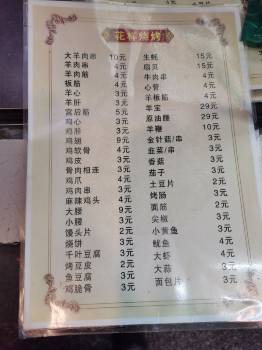 花样烧烤
大羊肉串 10元
羊肉串 4元
羊肉筋 4元
板筋 4元
羊心 4元
羊肝 3元
宫后筋 5元
鸡心 3元
鸡胗 3元
鸡翅 9元
鸡软骨 4元
鸡皮 3元
骨肉相连 3元
鸡爪 4元
鸡肉串 3元
麻辣鸡头 4元
大腰 9元
小腰 3元
馒头片 2元
烧饼 3元
千叶豆腐 3元
烤豆皮 2元
鱼豆腐 3元
鸡脆骨 3元
生蚝 15元
扇贝 15元
牛肉串 4元
心管 4元
羊板筋 4元
羊宝 29元
原油腰 29元
羊鞭 10元
金针菇/串 3元
韭菜/串 3元
香菇 3元
茄子 3元
土豆片 2元
烤肠 3元
面筋 2元
尖椒 3元
小黄鱼 3元
鱿鱼 4元
大虾 4元
大蒜 3元
面包片 3元